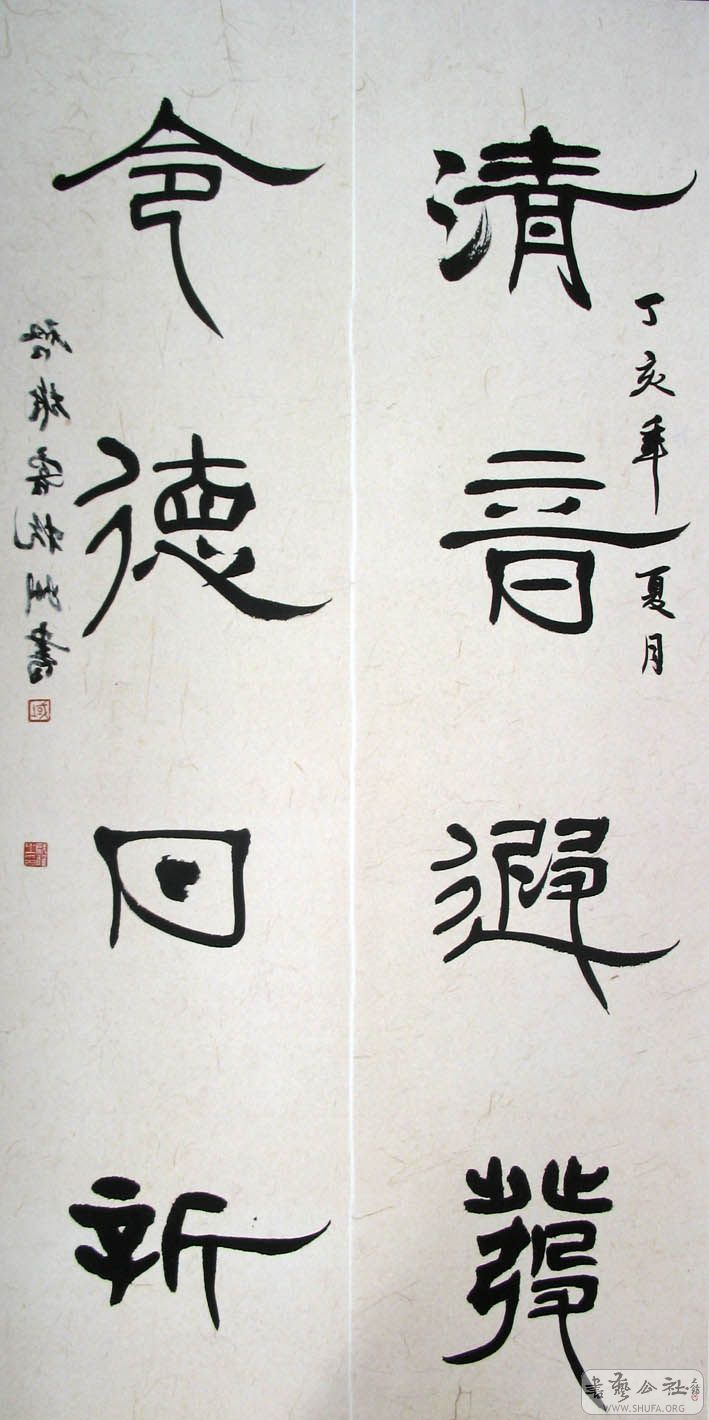 丁亥年夏月
清音遐發
令德日新
書藝公社
WWW.SHUFA.ORG